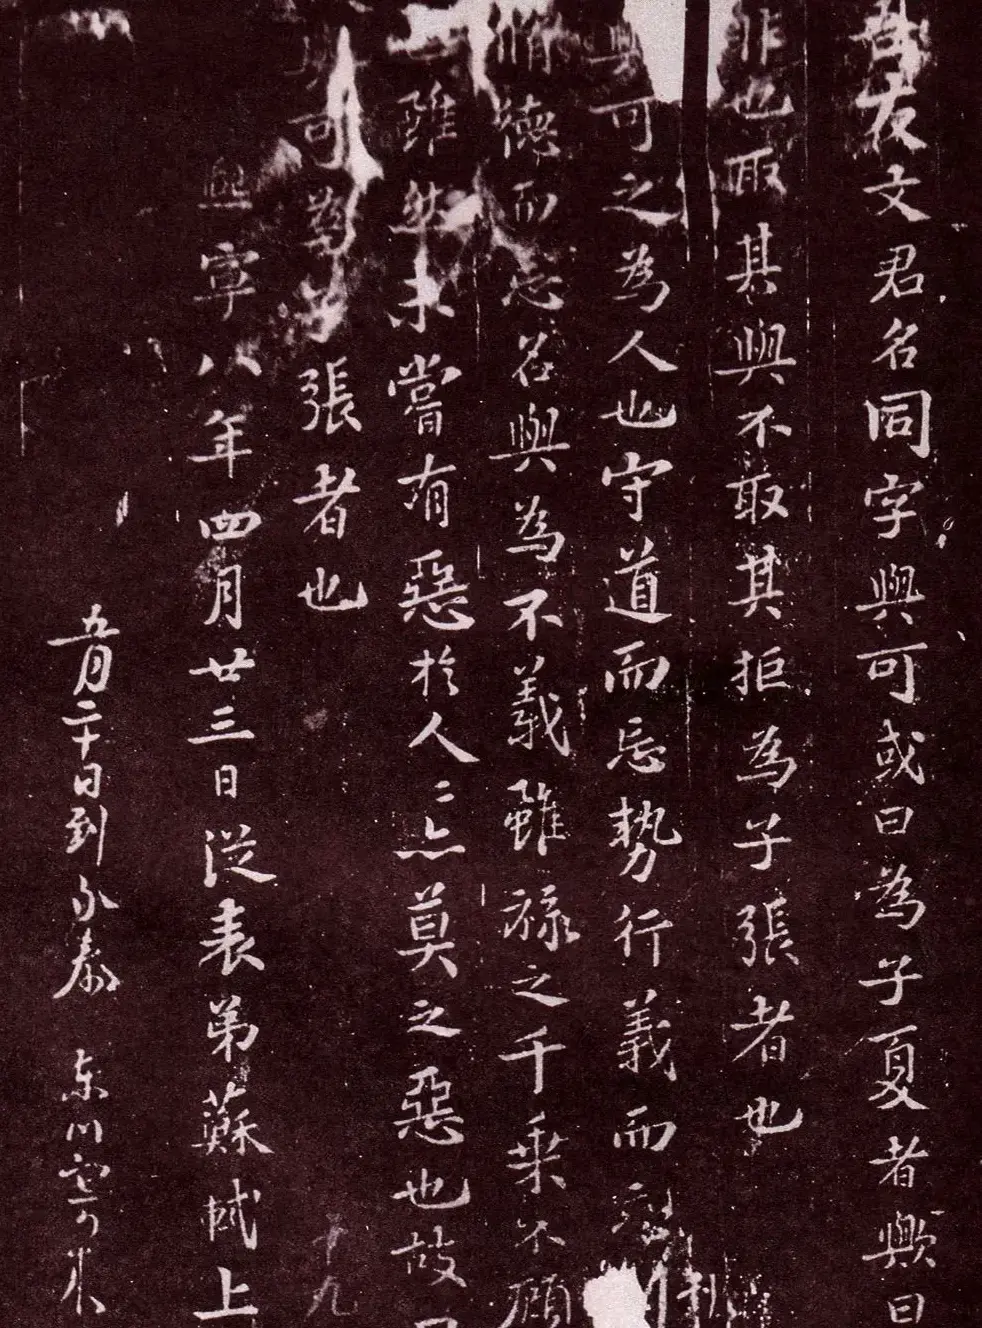 吾友文君名同字與可或曰為子夏者歟曰
非也取其與不取其拒為子張者也
與可之為人也守道而忘勢行義而忘利
脩德而忘名與為不義雖祿之千乘不顧
雖然未嘗有惡於人人亦莫之惡也故曰
與可為子張者也
熙寧八年四月廿三日從表弟蘇軾上
十九
五月二十日到永泰